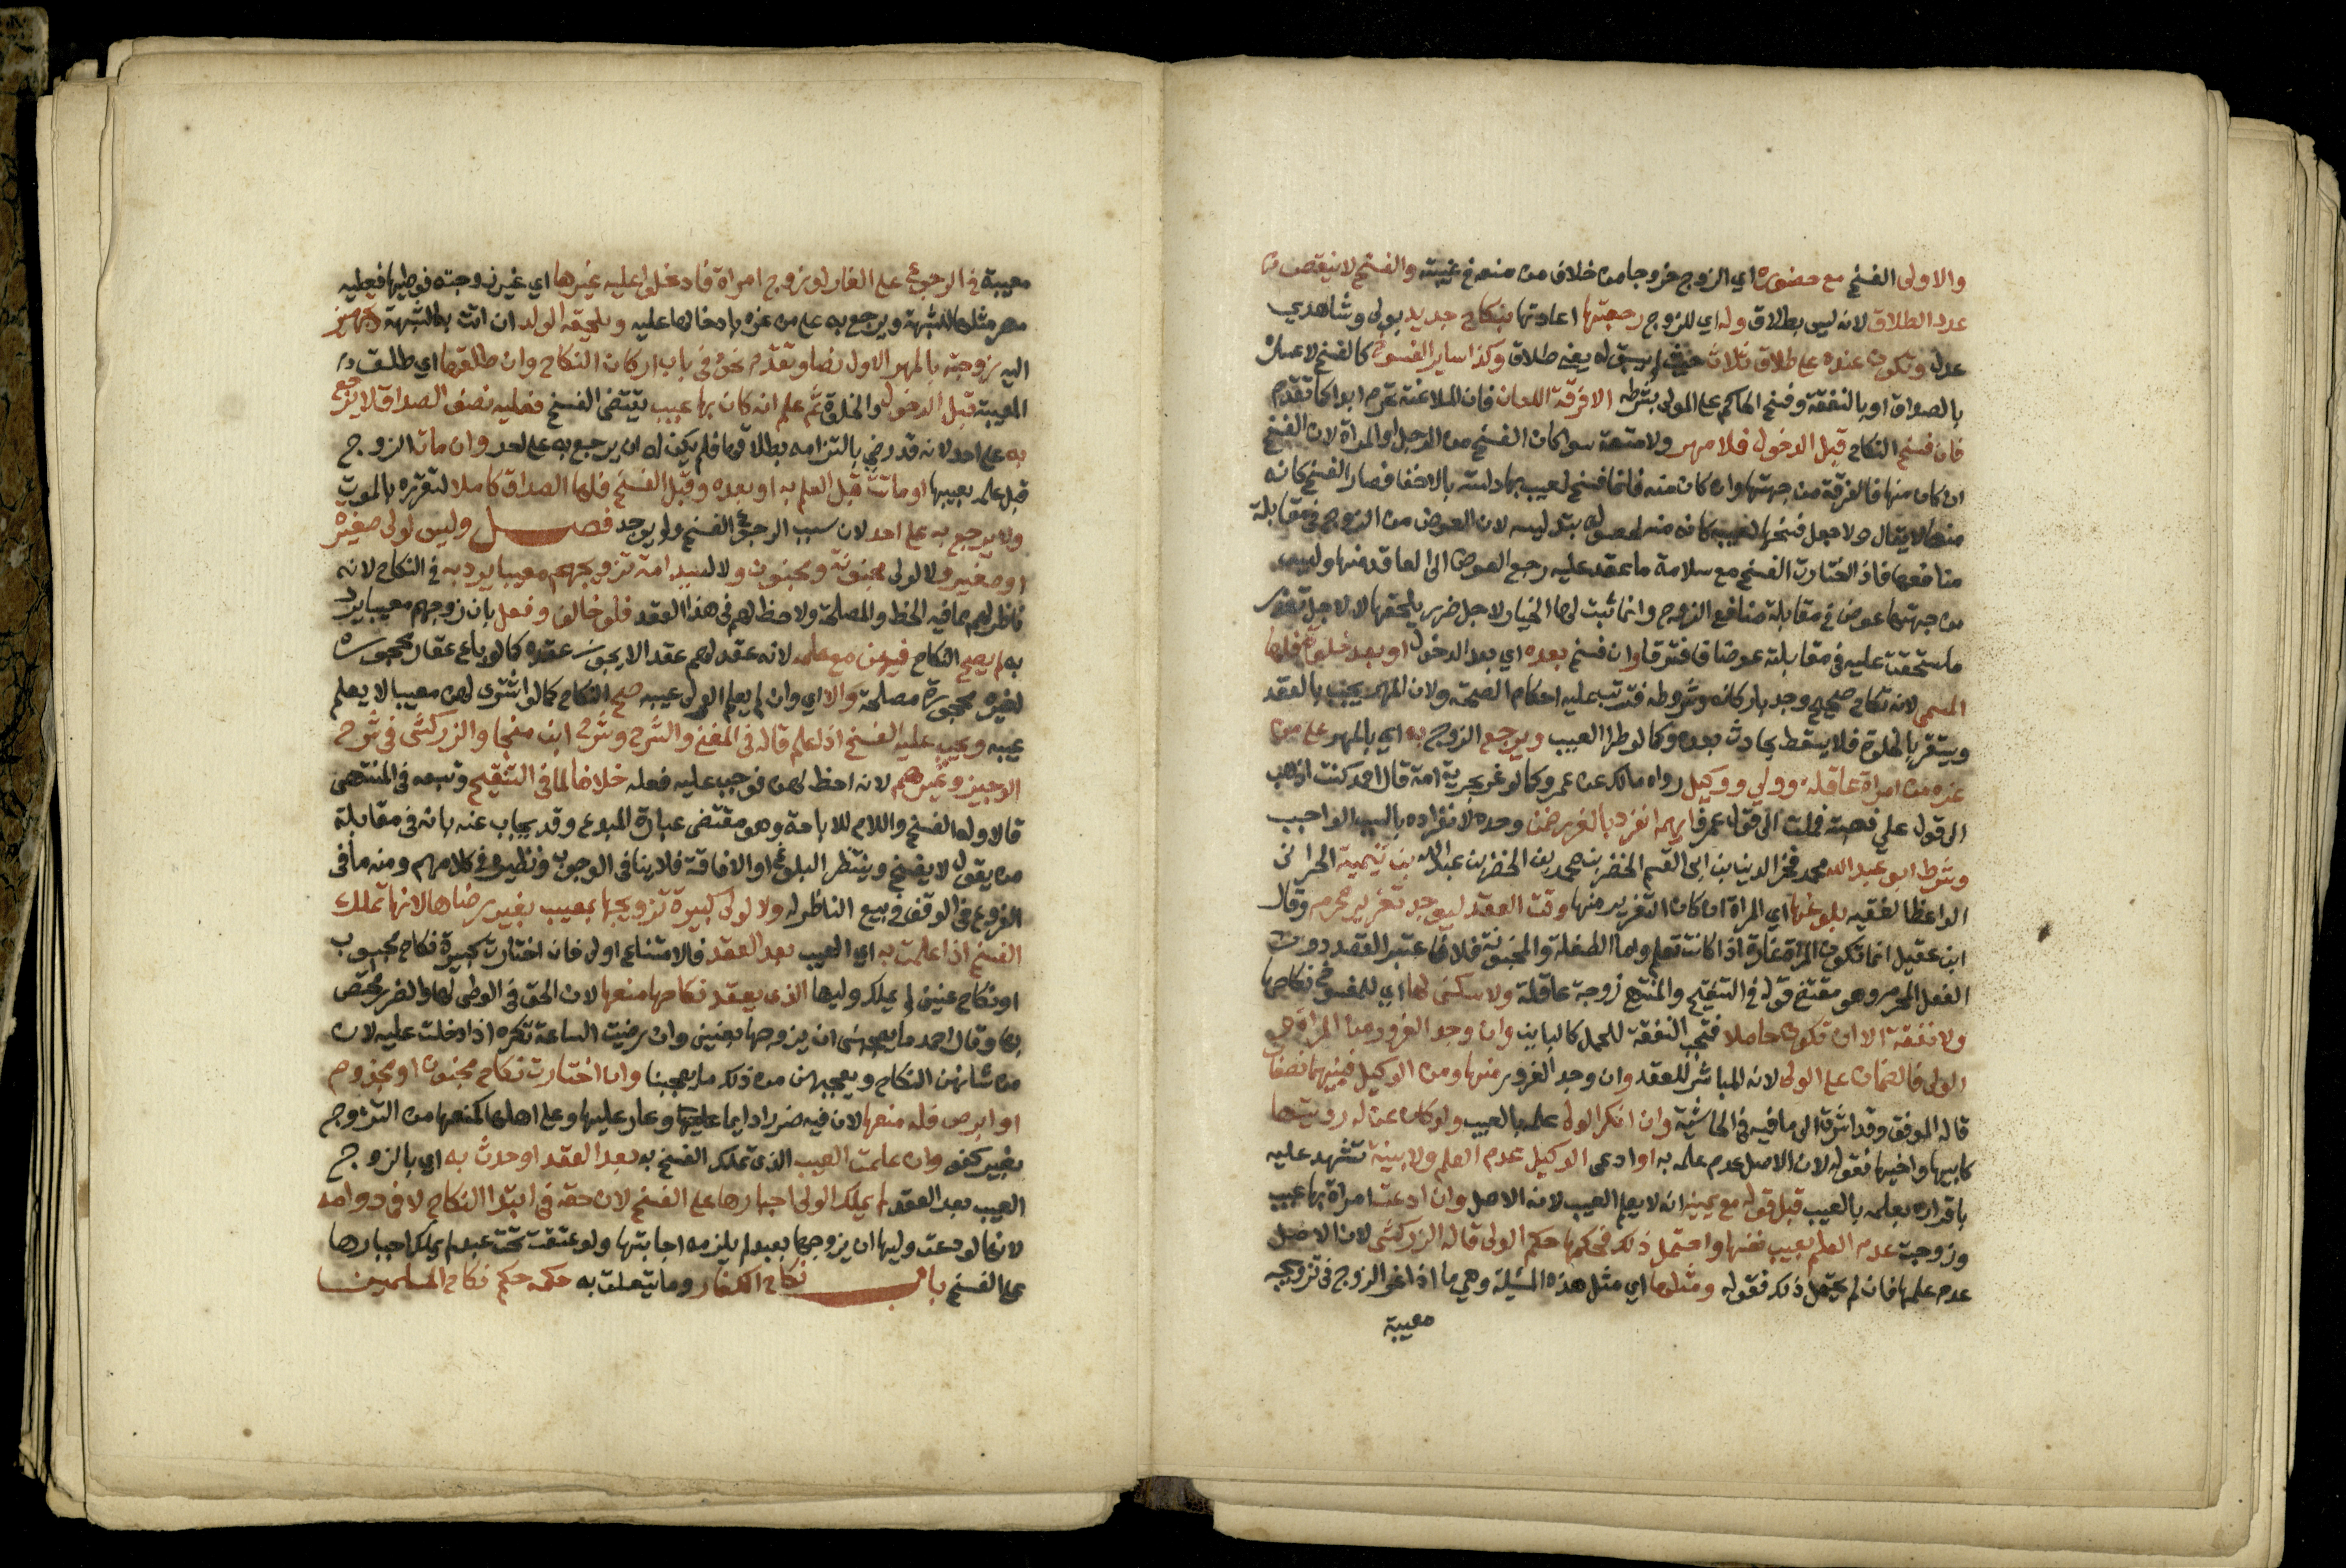 والاولى الفسخ مع حضوره اي الزوج خروجا من خلاف من منعه في غيبته والفسخ لا ينقص من
عدد الطلاق لانه ليس بطلاق وله اي للزوج رجعتها اعادتها بنكاح جديد بولي وشاهدي
عدل وتكون عنده على طلاق ثلاث حيث لم يسبق له يعني طلاق وكذا ساير الفسوخ كالفسخ لاعساره
بالصداق او بالنفقة وفسخ الحاكم على المولى بشرطه الا فرقة اللعان فان الملاعنة تحرم ابدا كما تقدم
فان فسخ النكاح قبل الدخول فلا مهر ولا متعة سوا كان الفسخ من الرجل او المراة لان الفسخ
ان كان منها فالفرقة من جهتها وان كان منه فانما فسخ لعيب بها دلسته بالاخفا فصار الفسخ كانه
منها لا يقال هلا جعل فسخها لعيبه كانه منه لحصوله بتدليسه لان العوض من الزوج في مقابلة
منافعها فاذا اختارت الفسخ مع سلامة ما عقد عليه رجع العوض الى العاقد منها وليس
من جهتها عوض في مقابلة منافع الزوج وانما ثبت لها الخيار لاجل ضرر يلحقها لا لاجل تعذر
ما استحقت عليه في مقابلته عوضا فافترقا وان فسخ بعده اي بعد الدخول او بعد خلوة فلها
المسمى لانه نكاح صحيح وجد باركانه وشروطه فترتب عليه احكام الصحة ولان المهر يجب بالعقد
ويستقر بالخلوة فلا يسقط بحادث بعده وكما لو طرا العيب ويرجع الزوج به اي بالمهر على من
غره من امراة عاقلة وولي ووكيل رواه مالك عن عمر وكما لو غر بحرية امة قال احمد كنت اذهب
الى قول علي فهبته فملت الى قول عمر فايهم انفرد بالغرر ضمن وحده لانفراده بالسبب الواجب
وشرط ابو عبد الله محمد فخر الدين بن ابي القسم الخضر بن محمد بن الخضر بن عبد الله بن تيمية الحراني
الواعظ الفقيه بلوغها اي المراة ان كان التغرير منها وقت العقد ليوجد تغرير محرم وقال
ابن عقيل انما تكون المراة غارة اذا كانت تعلم واما الطفلة والمجنونة فلا فاعتبر العقد دون
الفعل المحرم وهو مقتضى قوله في التنقيح والمنتهى زوجة عاقلة ولا سكنى لها اي للمفسوخ نكاحها
ولا نفقة الا ان تكون حاملا فتجب النفقة للحمل كالباين وان وجد الغرور من المراة و
الولي فالضمان على الولي لانه المباشر للعقد وان وجد الغرور منها ومن الوكيل فبينهما نصفان
قاله الموفق وقد اشرت الى ما فيه في الحاشية وان انكر الولي علمه بالعيب ولو كان ممن له رؤيتها
كابيها واخيها فقوله لان الاصل عدم علمه به او ادعى الوكيل عدم العلم ولا بينة تشهد عليه
باقراره بعلمه بالعيب قبل قوله مع يمينه انه لا يعلم العيب لانه الاصل وان ادعت امراة بها عيب
وزوجت عدم العلم بعيب نفسها واحتمل ذلك فحكمها حكم الولي قاله الزركشي لان الاصل
عدم علمها فان لم يحتمل ذلك فقوله ومثلها اي مثل هذه المسئلة وهي ما اذا غر الزوج في تزويجه
معيبة
معيبة في الرجوع على الغار لو تزوج امراة فادخلوا عليه غيرها اي غير زوجته فوطيها فعليه
مهر مثلها للشبهة ويرجع به على من غره بادخالها عليه ويلحقه الولد ان اتت به للشبهة وتجهز
اليه زوجته بالمهر الاول نصا وتقدم نحوه في باب اركان النكاح وان طلقها اي طلق
المعيبة قبل الدخول والخلوة ثم علم انه كان بها عيب يقتضي الفسخ فعليه نصف الصداق لا يرجع
به على احد لانه قد رضي بالتزامه بطلاقها فلم يكن له ان يرجع به على احد وان مات الزوج
قبل علمه بعيبها او ماتت قبل العلم به او بعده وقبل الفسخ فلها الصداق كاملا لتقرره بالموت
ولا يرجع به على احد لان سبب الرجوع الفسخ ولم يوجد فصل وليس لولي صغيرة
او صغير ولا لولي مجنونة ومجنون ولا لسيد امة تزويجهم معيبا يرد به في النكاح لانه
ناظر لهم بما فيه الحظ والمصلحة ولا حظ لهم في هذا العقد فلو خالف وفعل بان زوجهم معيبا يرد
به لم يصح النكاح فيهن مع علمه لانه عقد لهم عقدا لا يجوز عقده كما لو باع عقار محجوره
لغير محجوره مصلحة والا اي وان لم يعلم الولي عيبه صح النكاح كما لو اشترى لهن معيبا لا يعلم
عيبه ويجب عليه الفسخ اذا علم قاله في المغني والشرح وشرح ابن منجا والزركشي في شرح
الوجيز وغيرهم لانه احظ لهن فوجب عليه فعله خلافا لما في التنقيح وتبعه في المنتهى
قالا وله الفسخ واللام للاباحة وهو مقتضى عبارة المبدع وقد يجاب عنه بانه في مقابلة
من يقول لا يفسخ وينتظر البلوغ او الافاقة فلا ينافي الوجوب ونظيره في كلامهم ومنه ما في
الفروع في الوقف في بيع الناظر له ولا لولي كبيرة تزويجها بمعيب بغير رضاها لانها تملك
الفسخ اذا علمت به اي العيب بعد العقد فالامتناع اولى فان اختارت كبيرة نكاح مجبوب
او نكاح عنين لم يملك وليها الذي يعقد نكاحها منعها لان الحق في الوطي لها والضرر مختص
بها وقال احمد ما يعجبني ان يزوجها بعنين وان رضيت الساعة تكره اذا دخلت عليه لان
من شانهن النكاح ويعجبهن من ذلك ما يعجبنا وان اختارت نكاح مجنون او مجذوم
او ابرص فله منعها لان فيه ضررا دايما عليها وعار عليها وعلى اهلها كمنعها من التزوج
بغير كفو وان علمت العيب الذي تملك الفسخ به بعد العقد او حدث به اي بالزوج
العيب بعد العقد لم يملك الولي اجبارها على الفسخ لان حقه في ابتدا النكاح لا في دوامه
لانها لو دعت وليها ان يزوجها بعبد لم يلزمه اجابتها ولو عتقت تحت عبد لم يملك اجبارها
على الفسخ باب نكاح الكفار وما يتعلق به حكمه حكم نكاح المسلمين